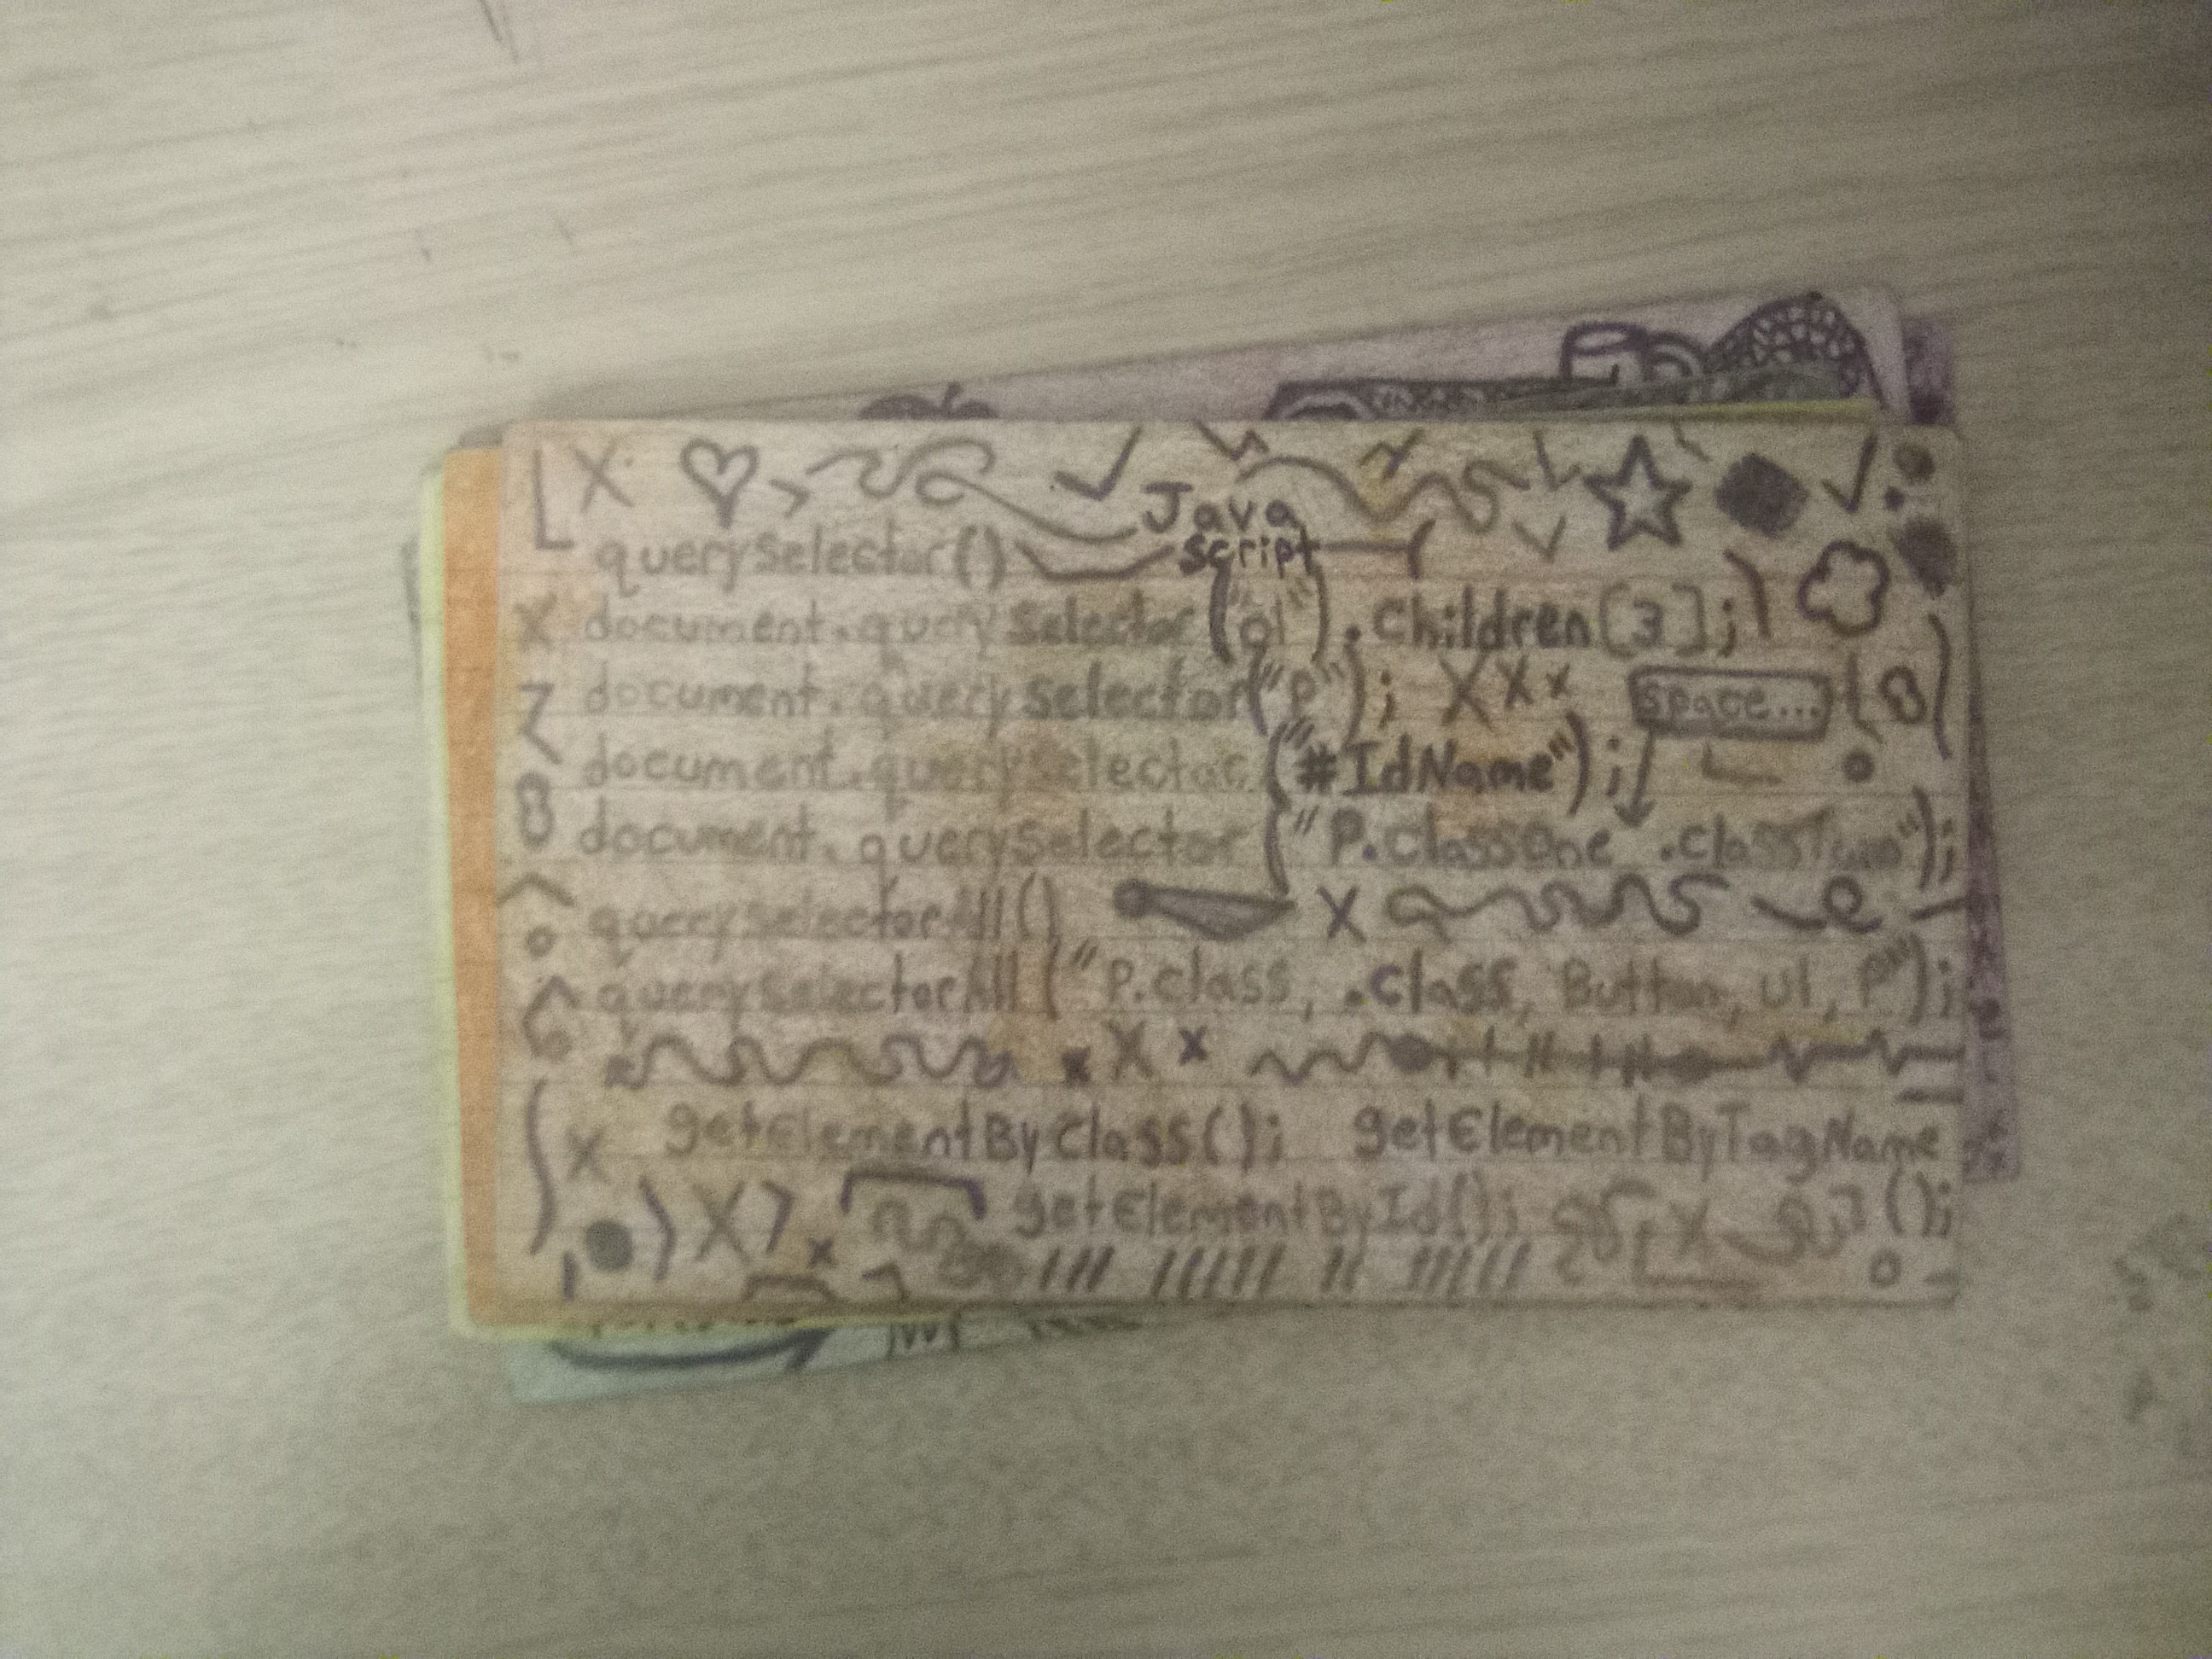 Java
Script
querySelector()
document.querySelector("ol").children[3];
document.querySelector("p"); space...
document.querySelector("#IdName");
document.querySelector("P.classOne .classTwo");
querySelectorAll()
querySelectorAll("P.class, .class, Button, ul, P");
getElementByClass(); getElementByTagName
getElementById(); ();